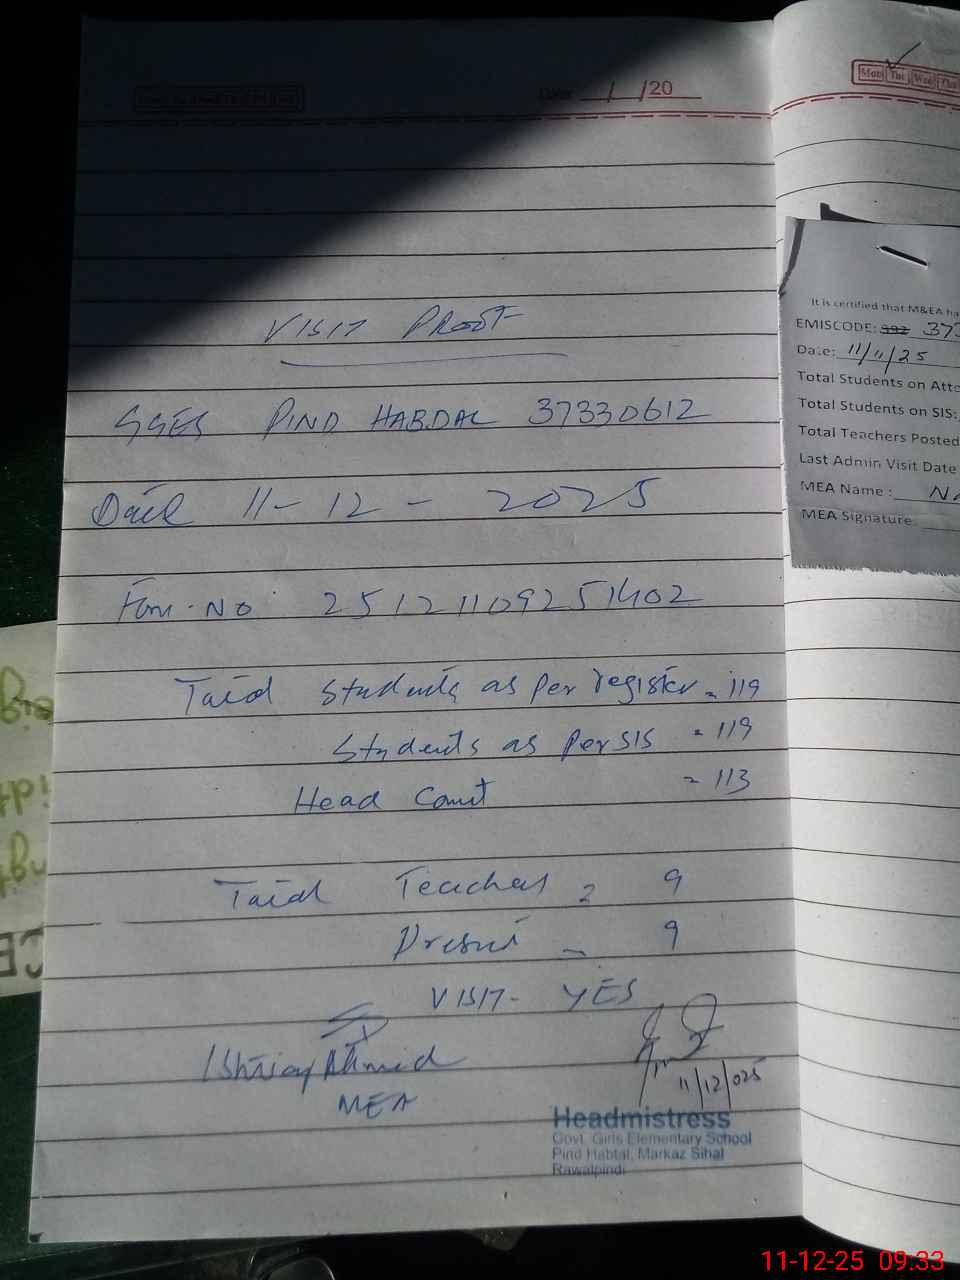 Date / /20
VISIT PROOF
GGES PIND HABDAL 37330612
Date 11-12-2025
Form-No 25121109251402
Total Students as per register = 119
Students as per SIS = 119
Head Count = 113
Total Teachers = 9
Present - 9
VISIT- YES
Ishtiaq Ahmid
MEA
11/12/025
Headmistress
Govt. Girls Elementary School
Pind Habtal, Markaz Sihal
Rawalpindi
Mon Tue Wed Thu
It is certified that M&EA ha
EMISCODE: 373
Date: 11/11/25
Total Students on Atte
Total Students on SIS:
Total Teachers Posted
Last Admin Visit Date
MEA Name: Na
MEA Signature:
11-12-25 09:33